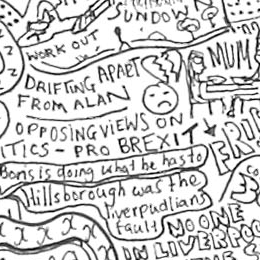 SUNDOWN
WORK OUT
MUM
DRIFTING APART
FROM ALAN
OPPOSING VIEWS ON
ITICS - PRO BREXIT
ERIC
Boris is doing what he has to
Hillsborough was the
liverpudlians
fault
NO ONE
IN LIVERPOO